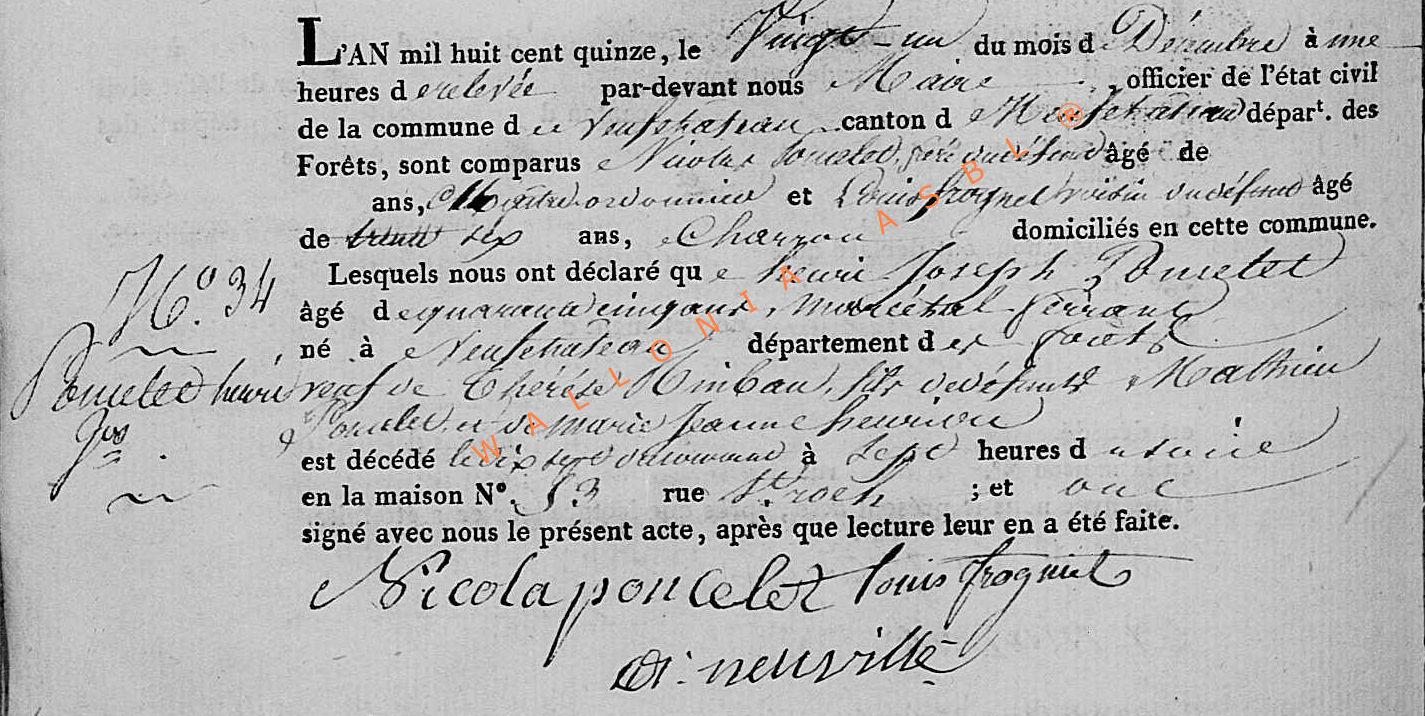 L'AN mil huit cent quinze, le Vingt-un du mois de Décembre à une
heures de relevée par-devant nous Maire, officier de l'état civil
de la commune de Neufchateau canton de Neufchateau dépar.t des
Forêts, sont comparus Nicolas Poncelet, frère du défunt âgé de
ans, Maitre cordonnier et Louis frognet voisin du défunt âgé
de trente six ans, Charron domiciliés en cette commune.
Lesquels nous ont déclaré que henri Joseph Poncelet
N.o 34
âgé de quarante cinq ans, Maréchal ferrant
né à Neufchateau département des forêts
Poncelet henri
Jos
veuf de Thérése, fils de défunts Mathieu
Poncelet et de marie Jeanne henrion
est décédé le dix sept du courant à Sept heures du soir
en la maison N.o 53 rue St. roch ; et ont
signé avec nous le présent acte, après que lecture leur en a été faite.
Nicola poncelet louis frognet
neuville
WALLONIA ASBL ®